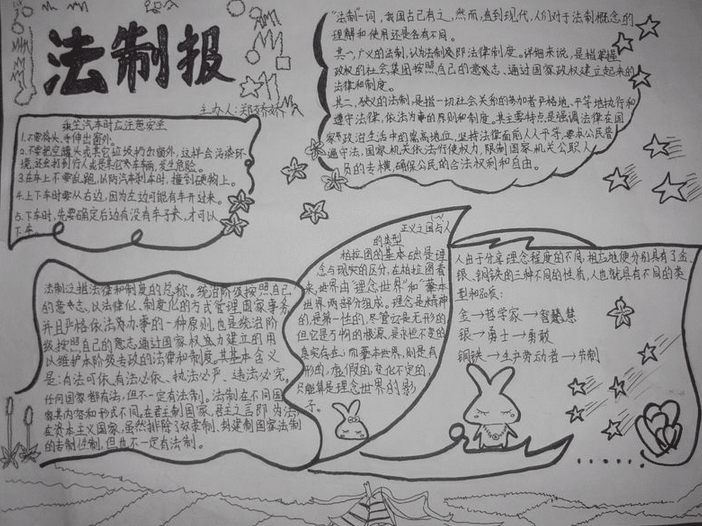 法制报
主办人:郑娇娇
乘坐汽车时应注意安全
1.不要将头、手伸出窗外。
2.不要把空罐头或其它垃圾扔出窗外,这样会污染环
境,还会打到行人或是其它汽车车辆,发生危险。
3.在车上不要乱跑,以防汽车刹车时,撞到硬物上。
4.上下车时要从右边,因为左边可能有车开过来。
5.下车时,先要确定后边有没有车子来,才可以
下车。
"法制"一词,我国古已有之,然而,直到现代,人们对于法制概念的
理解和使用还是各有不同。
其一,广义的法制,认为法制即法律制度。详细来说,是指掌握
政权的社会集团按照自己的意志,通过国家政权建立起来的
法律和制度。
其二,狭义的法制,是指一切社会关系的参加者严格地、平等地执行和
遵守法律,依法办事的原则和制度。其主要特点是强调法律在国
家政治生活中的崇高地位,坚持法律面前人人平等,要求公民普
遍守法,国家机关依法行使权力,限制国家机关公职人
员的专横,确保公民的合法权利和自由。
法制过指法律和制度的总称。统治阶级按照自己
的意志,以法律化、制度化的方式管理国家事务,
并且严格依法办事的一种原则,也是统治阶
级按照自己的意志通过国家权力建立的用
以维护本阶级专政的法律和制度,其基本含义
是:有法可依、有法必依、执法必严、违法必究,
任何国家都有法,但不一定有法制。法制在不同国
家其内容和形式不同,在君主制国家,君主之言即为法,
在资本主义国家,虽然排除了奴隶制、封建制国家法制
的专制性制,但也不一定有法制。
正义之国与人
的类型
柏拉图的基本思想是理
念与现实的区分,在柏拉图看
来,世界由"理念世界"和"基本
世界"两部分组成。理念是精神
的,是第一性的,尽管它是无形的
但它是万物的根源,是永恒不变的
真实存在;而基本世界,则是有
形的,虚假的,变化不定的,
只能算是理念世界的影
子。
人由于分享理念程度的不同,相应地便分别具有了金、
银、铜铁的三种不同的性质,人也就具有不同的类
型和品质:
金→哲学家→智慧
银→勇士→勇敢
铜铁→生产劳动者→节制